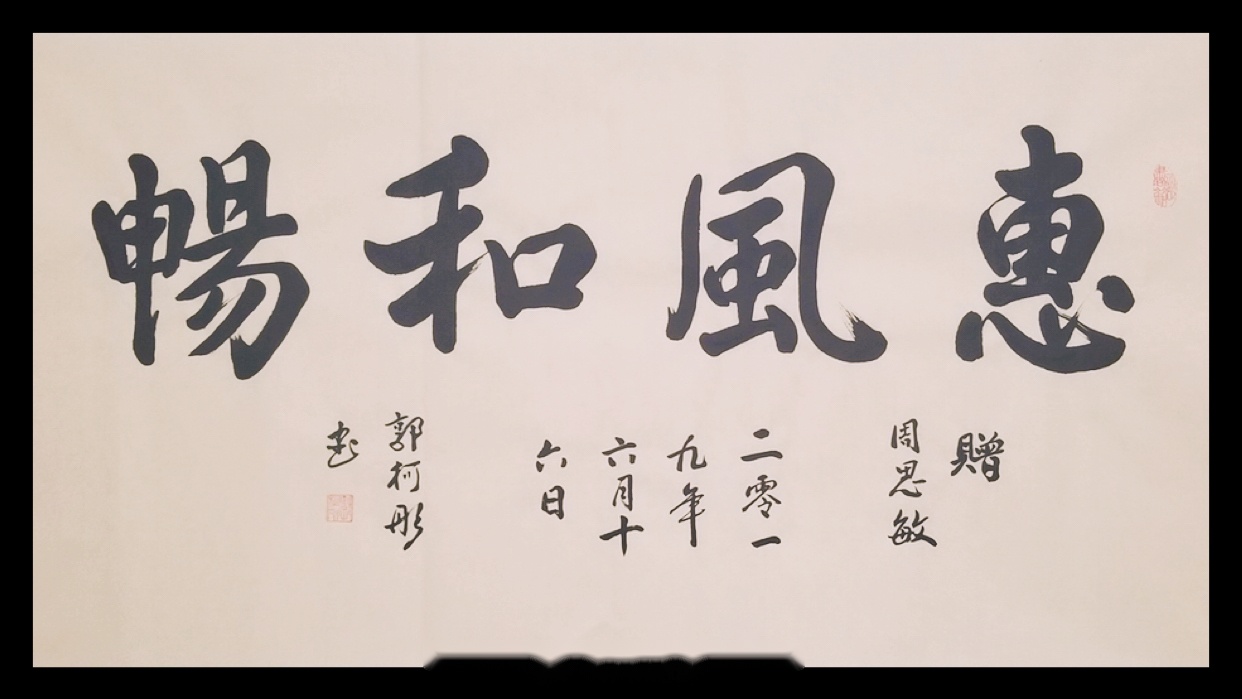 惠風和暢
贈
周思敏
二零一
九年
六月十
六日
郭柯彤
书